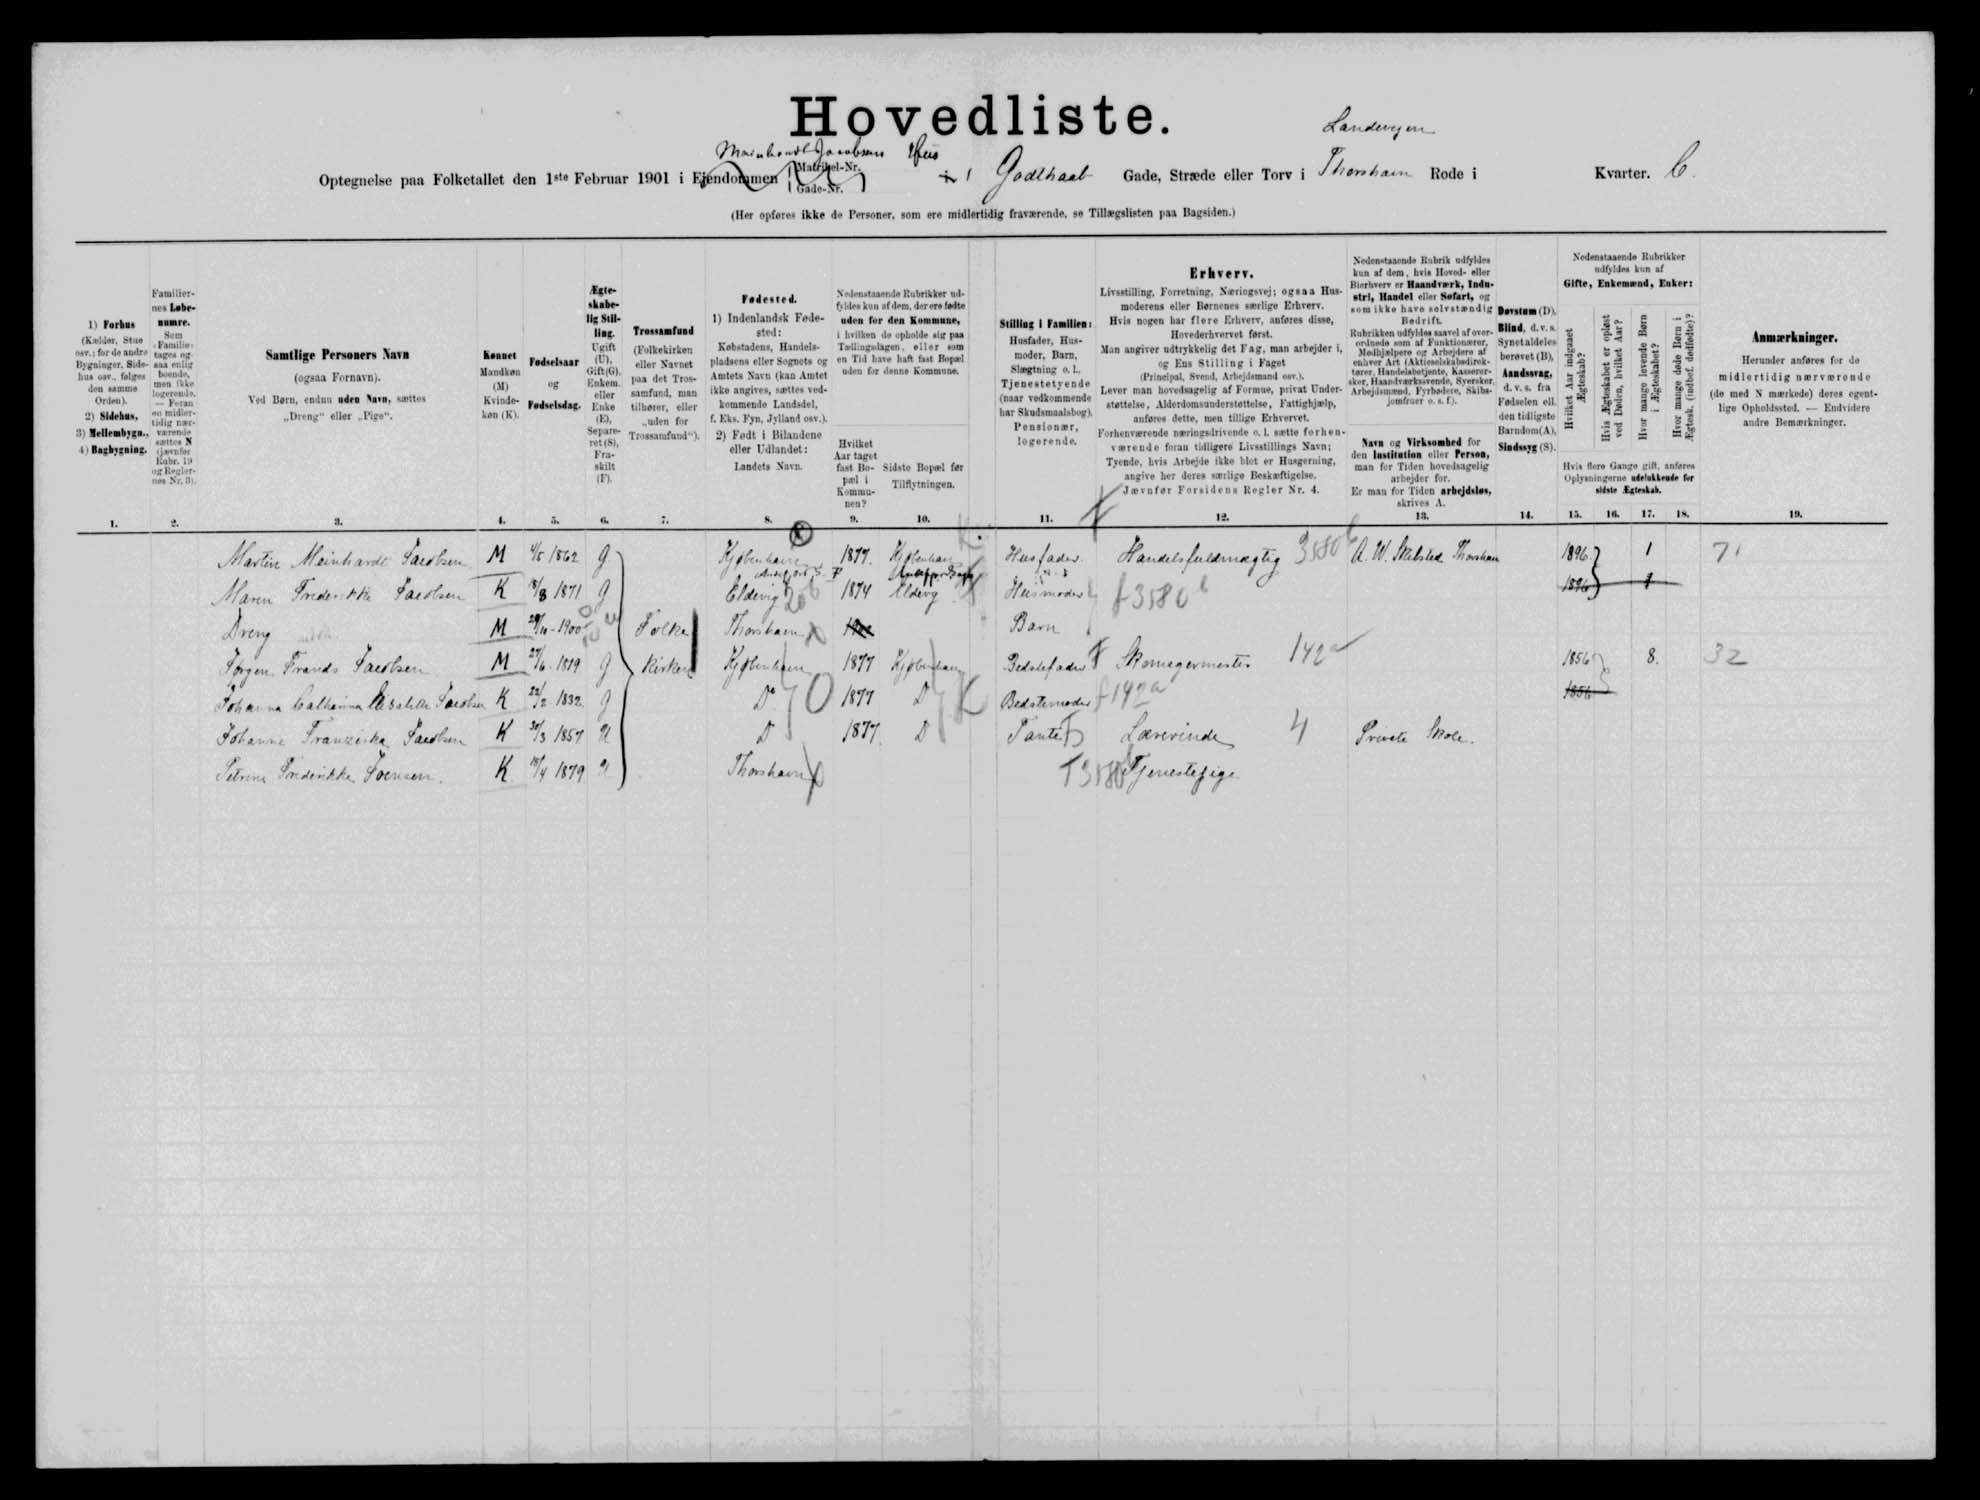 Hovedliste.
Landevejen
Meinhardt Jacobsens Hus
Optegnelse paa Folketallet den 1ste Februar 1901 i Ejendommen Matrikel-Nr. Gade-Nr. i Godthaab Gade, Stræde eller Torv i Thorshavn Rode i Kvarter. C.
(Her opføres ikke de Personer, som ere midlertidig fraværende, se Tillægslisten paa Bagsiden.)
1) Forhus
(Kælder, Stue
osv.; for de andre
Bygninger, Side-
hus osv., følges
den samme
Orden).
2) Sidehus,
3) Mellembygn.,
4) Bagbygning.
Familier-
nes Løbe-
numre.
Som
Familie
tages og-
saa enlig
boende,
men ikke
logerende.
— Foran
en midler-
tidig nær-
værende
sættes N
(jævnfør
Rubr. 19
og Regler-
nes Nr. 3).
Samtlige Personers Navn
(ogsaa Fornavn).
Ved Børn, endnu uden Navn, sættes
„Dreng" eller „Pige".
Kønnet
Mandkøn
(M)
Kvinde-
køn (K).
Fødselsaar
og
Fødselsdag.
Ægte-
skabe-
lig Stil-
ling.
Ugift
(U).
Gift(G).
Enkem.
eller
Enke
(E),
Separe-
ret (S),
Fra-
skilt
(F).
Trossamfund
(Folkekirken
eller Navnet
paa det Tros-
samfund, man
tilhører, eller
„uden for
Trossamfund").
Fødested.
1) Indenlandsk Føde-
sted:
Købstadens, Handels-
pladsens eller Sognets og
Amtets Navn (kan Amtet
ikke angives, sættes ved-
kommende Landsdel,
f. Eks. Fyn, Jylland osv.).
2) Født i Bilandene
eller Udlandet:
Landets Navn.
Nedenstaaende Rubrikker ud-
fyldes kun af dem, der ere fødte
uden for den Kommune,
i hvilken de opholde sig paa
Tællingsdagen, eller som
en Tid have haft fast Bopæl
uden for denne Kommune.
Hvilket
Aar taget
fast Bo-
pæl i
Kommu-
nen?
Sidste Bopæl før
Tilflytningen.
Stilling i Familien:
Husfader, Hus-
moder, Barn,
Slægtning o. l.
Tjenestetyende
(naar vedkommende
har Skudsmaalsbog),
Pensionær,
logerende.
Erhverv.
Livsstilling, Forretning, Næringsvej; ogsaa Hus-
moderens eller Børnenes særlige Erhverv.
Hvis nogen har flere Erhverv, anføres disse,
Hovederhvervet først.
Man angiver udtrykkelig det Fag, man arbejder i,
og Ens Stilling i Faget
(Principal, Svend, Arbejdsmand osv.).
Lever man hovedsagelig af Formue, privat Under-
støttelse, Alderdomsunderstøttelse, Fattighjælp,
anføres dette, men tillige Erhvervet.
Forhenværende næringsdrivende o. l. sætte forhen-
værende foran tidligere Livsstillings Navn;
Tyende, hvis Arbejde ikke blot er Husgerning,
angive her deres særlige Beskæftigelse.
Jævnfør Forsidens Regler Nr. 4.
Nedenstaaende Rubrik udfyldes
kun af dem, hvis Hoved- eller
Bierhverv er Haandværk, Indu-
stri, Handel eller Søfart, og
som ikke have selvstændig
Bedrift.
Rubrikken udfyldes saavel af over-
ordnede som af Funktionærer,
Medhjælpere og Arbejdere af
enhver Art (Aktieselskabsdirek-
tører, Handelsbetjente, Kasserer-
sker, Haandværkssvende, Syersker,
Arbejdsmænd, Fyrbødere, Skibs-
jomfruer o. s. f.).
Navn og Virksomhed for
den Institution eller Person,
man for Tiden hovedsagelig
arbejder for.
Er man for Tiden arbejdsløs,
skrives A.
Døvstum (D),
Blind, d. v. s.
Synet aldeles
berøvet (B),
Aandssvag,
d. v. s. fra
Fødselen ell.
den tidligste
Barndom (A),
Sindssyg (S).
Nedenstaaende Rubrikker
udfyldes kun af
Gifte, Enkemænd, Enker:
Hvilket Aar indgaaet
Ægteskab?
Hvis Ægteskabet er opløst
ved Døden, hvilket Aar?
Hvor mange levende Børn
i Ægteskabet?
Hvor mange døde Børn i
Ægtesk. (indbef. dødfødte)?
Hvis flere Gange gift, anføres
Oplysningerne udelukkende for
sidste Ægteskab.
Anmærkninger.
Herunder anføres for de
midlertidig nærværende
(de med N mærkede) deres egent-
lige Opholdssted. — Endvidere
andre Bemærkninger.
1. 2. 3. 4. 5. 6. 7. 8. 9. 10. 11. 12. 13. 14. 15. 16. 17. 18. 19.
Martin Meinhardt Jacobsen M 4/5 1862 G Kjøbenhavn 1877. Kjøbenhavn Husfader Handelsfuldmægtig 3580 b Thorshavn 1896 1 71
Maren Frederikke Jacobsen K 18/8 1871 G Eldevig 1874 Eldevig Husmoder f 3580 b 1896 1
Dreng M 1900 Folke Thorshavn Barn
Jørgen Frands Jacobsen M 27/6 1819 G kirken Kjøbenhavn 1877 Kjøbenhavn Bedstefader Skomagermester 142 a 1856 8. 32
Johanna Jacobsen K 22/2 1832. G Do 1877 D Bedstemoder f 142 a 1856
Johanne Franziska Jacobsen K 30/3 1857 U D 1877. D Tante Lærerinde 4 Private Skole.
Petrine Frederikke Joensen. K 18/4 1879 U Thorshavn T 3580 b Tjenestepige